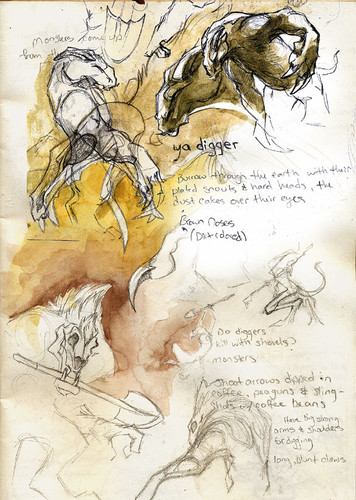 Monsters come up
from
ya digger
Burrow through the earth with their
plated snouts & hard heads, the
dust cakes over their eyes
Brown Noses
(Dirt colored)
Do diggers
kill with shovels?
monsters
Shoot arrows dipped in
coffee, peaguns & sling-
shots w/ coffee beans
Have big strong
arms & shoulders
for digging
long, blunt claws